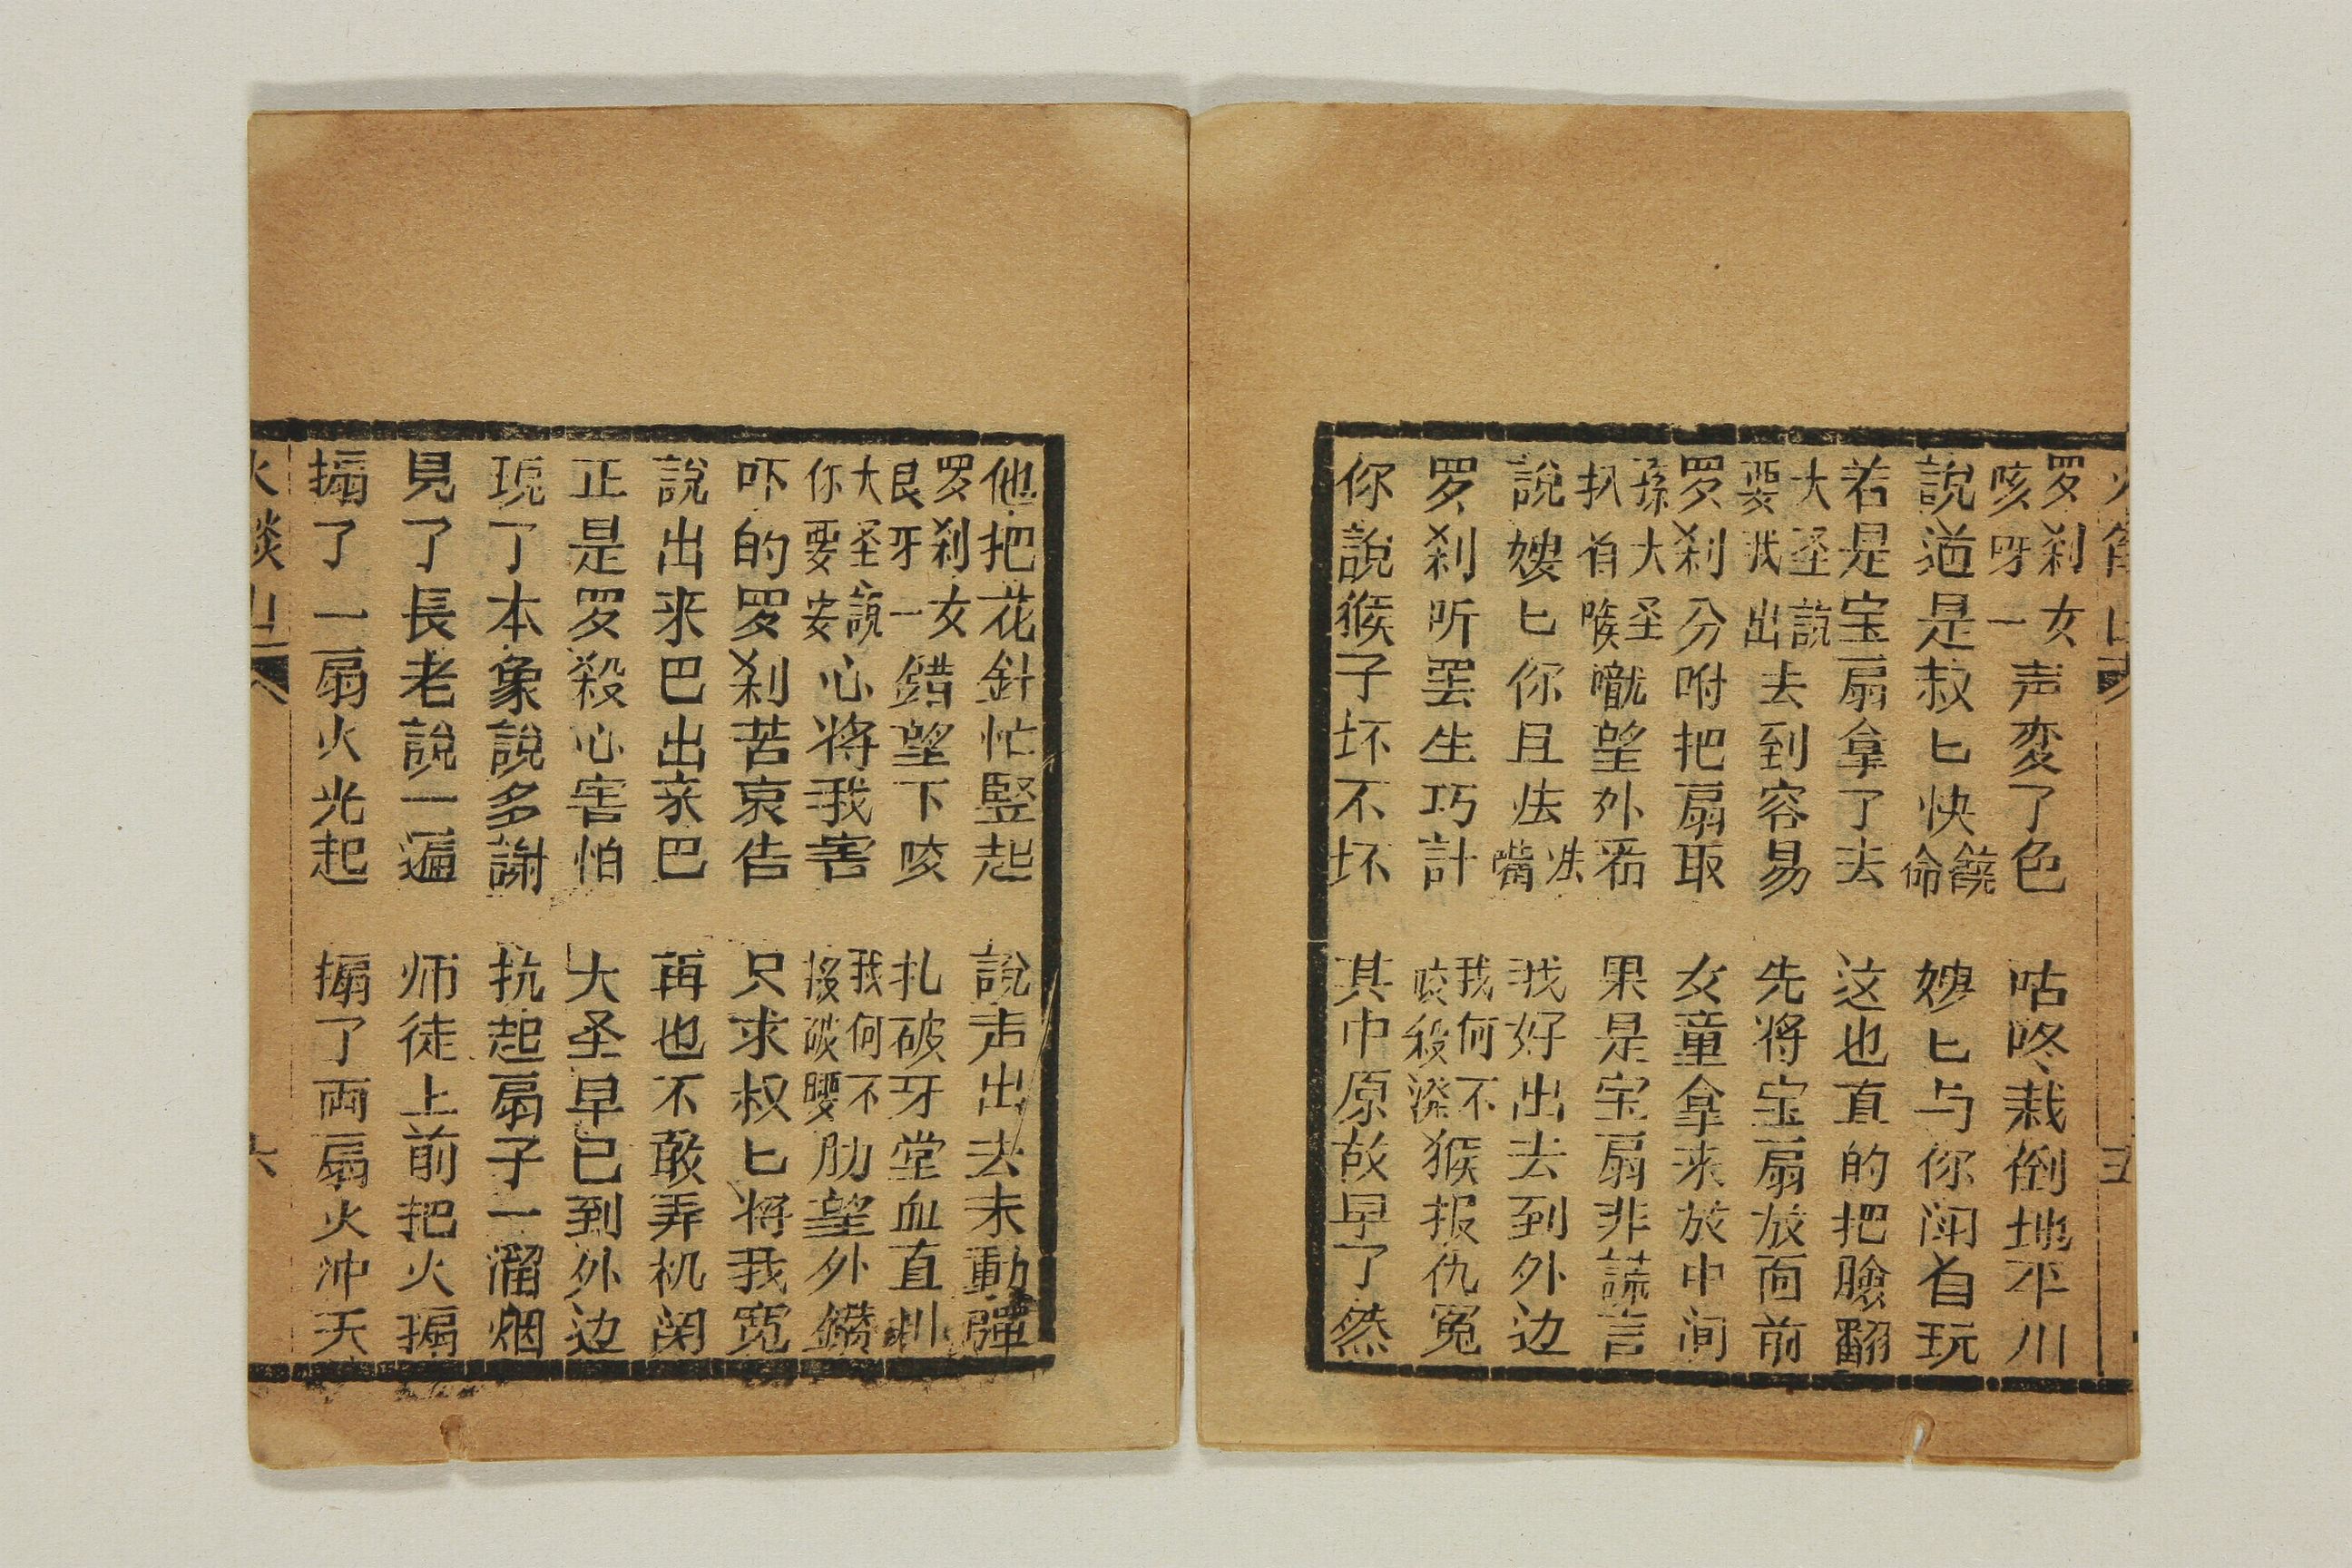 罗刹女咳呀一声变了色　咕咚栽倒地平川
說道是叔匕快饒命　嫂匕与你闹着玩
若是宝扇拿了去　这也直的把臉翻
大圣說要我出去到容易　先将宝扇放面前
罗刹分咐把扇取　女童拿来放中间
孫大圣扒着喉嚨望外看　果是宝扇非謊言
說嫂匕你且嘴　我好出去到外边
罗刹听罢生巧計　我何不咬殺潑猴报仇冤
你說猴子坏不坏　其中原故早了然
五
他把花針忙竪起　說声出去未動彈
罗刹女艮牙一錯望下咬　扎破牙堂血直川
大圣說你要安心将我害　我何不破腰肋望外鑽
吓的罗刹苦哀告　只求叔匕将我宽
說出来巴出来巴　再也不敢弄机関
正是罗殺心害怕　大圣早已到外边
現了本象說多謝　抗起扇子一溜烟
見了長老說一遍　师徒上前把火搧
搧了一扇火光起　搧了両扇火冲天
火燄山　六